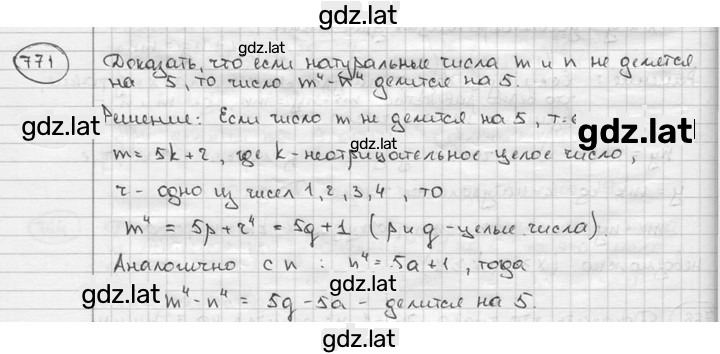 gdz.lat
771 Доказать, что если натуральные числа m и n не делятся
на 5, то число m⁴-n⁴ делится на 5.
Решение: Если число m не делится на 5, т.е
gdz.lat
gdz.lat
m = 5k+r, где k-неотрицательное целое число,
r - одно из чисел 1, 2, 3, 4, то
m⁴ = 5p+r⁴ = 5q+1 (p и q -целые числа)
gdz.lat
Аналогично с n : n⁴ = 5a+1, тогда
gdz.lat
gdz.lat
m⁴-n⁴ = 5q-5a - делится на 5.
gdz.lat